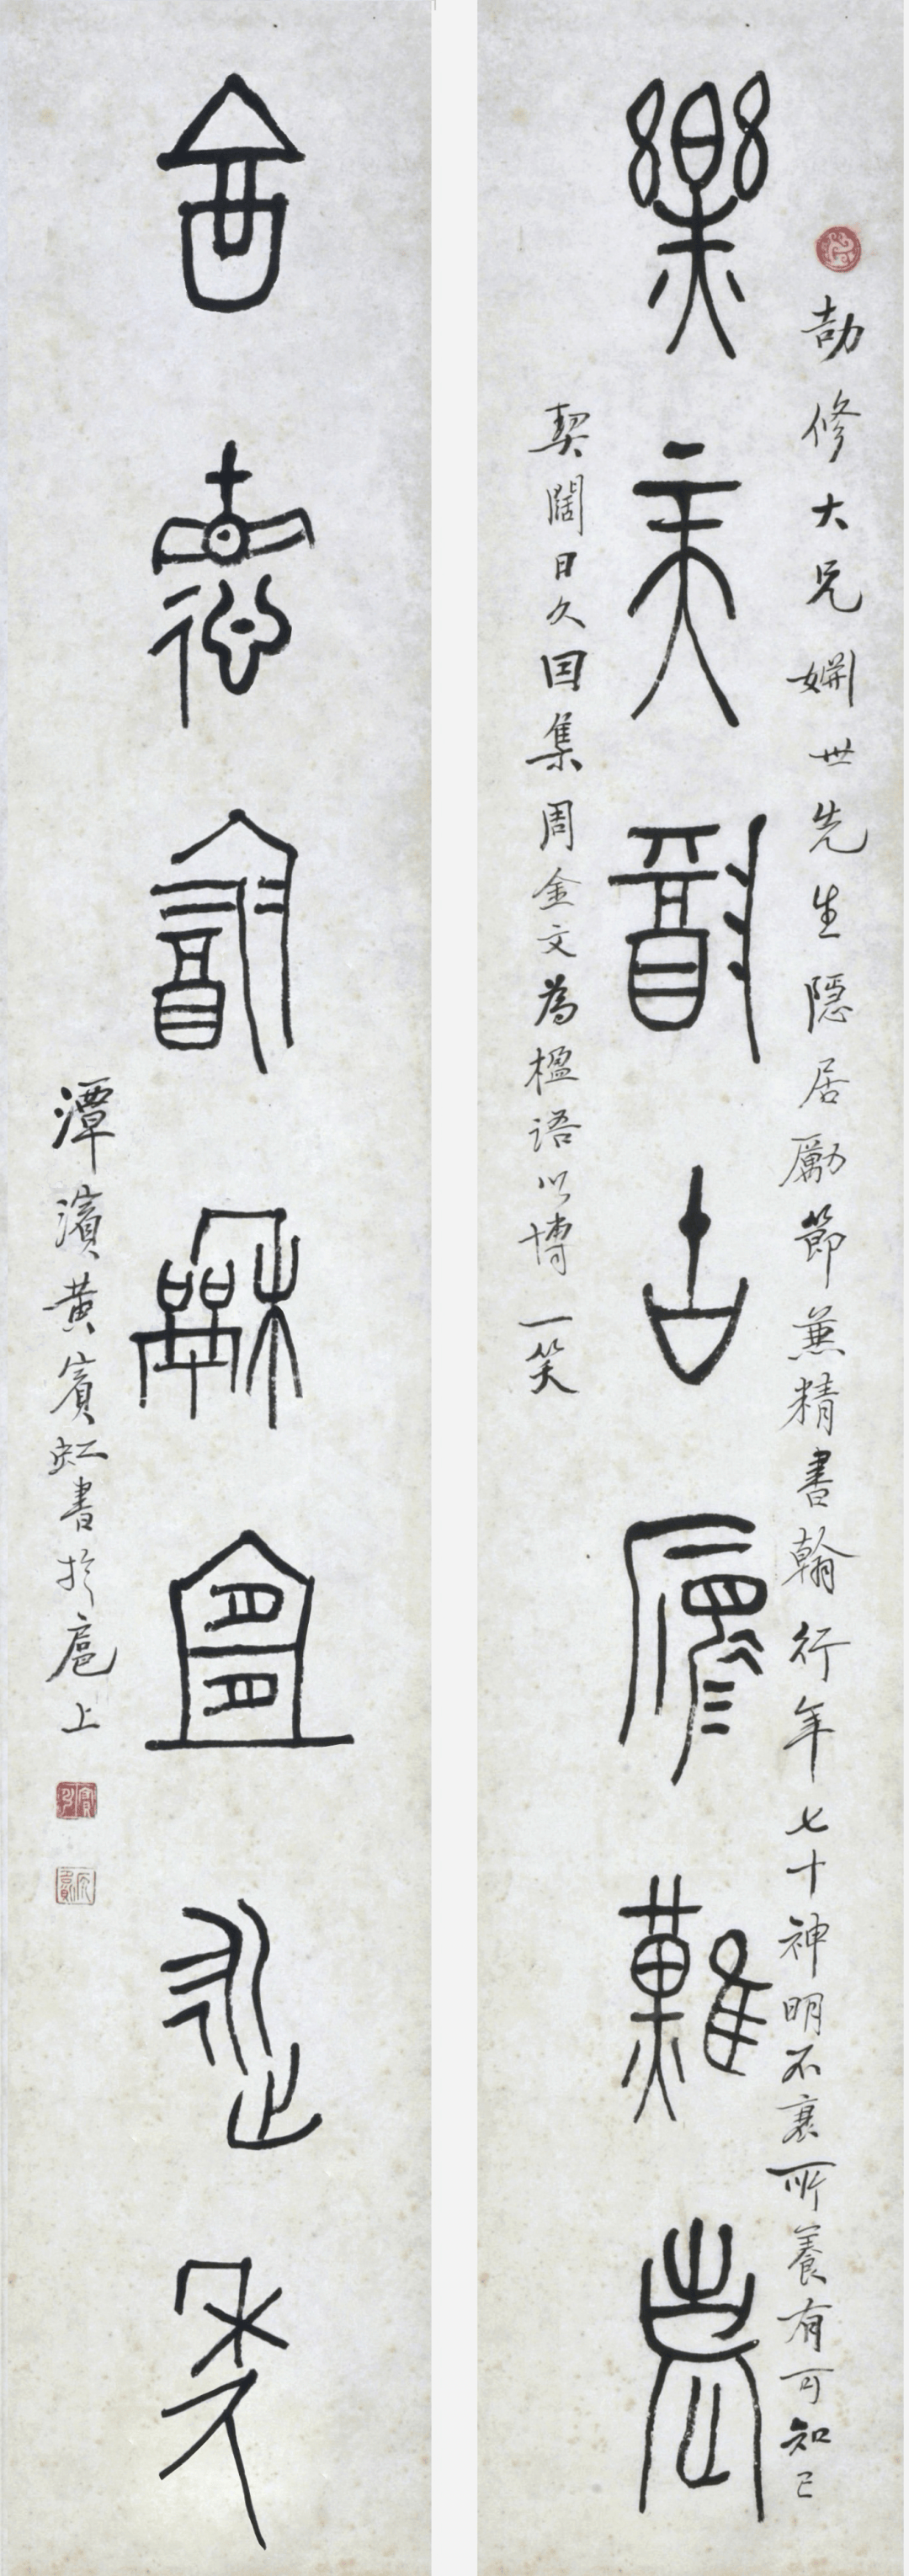 劼修大兄姻世先生隱居勵節兼精書翰行年七十神明不衰所養有可知已
樂天古難
契闊日久因集周金文為楹語以博一笑
酓德龢宜
潭濱黃賓虹書於扈上